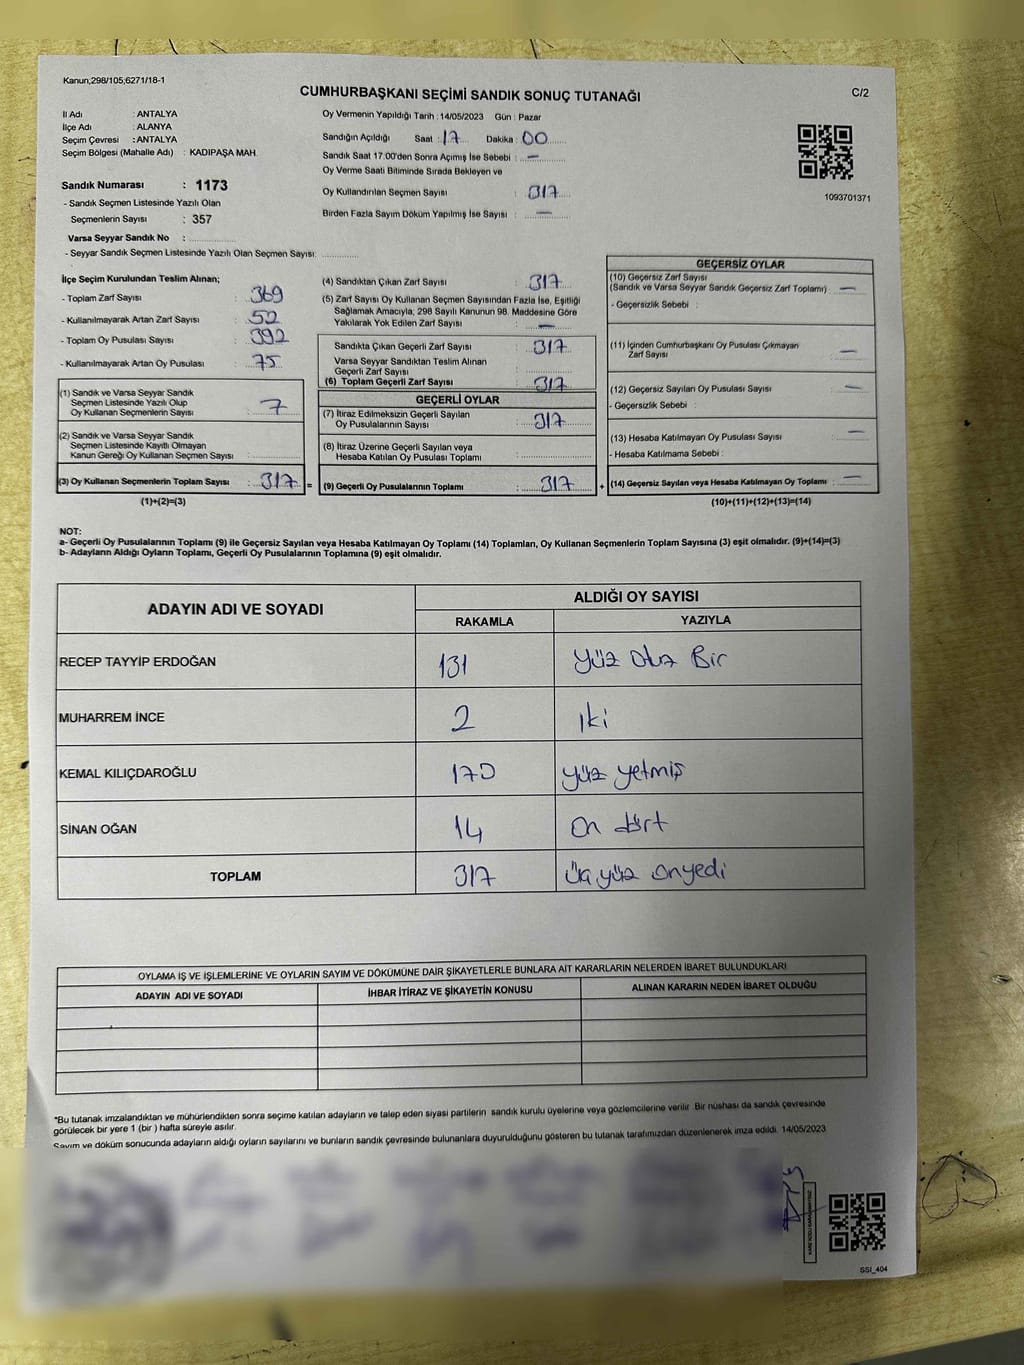 Kanun;298/105,6271/18-1
CUMHURBAŞKANI SEÇİMİ SANDIK SONUÇ TUTANAĞI
C/2
İl Adı : ANTALYA
İlçe Adı : ALANYA
Seçim Çevresi : ANTALYA
Seçim Bölgesi (Mahalle Adı) : KADIPAŞA MAH.
Sandık Numarası : 1173
- Sandık Seçmen Listesinde Yazılı Olan
Seçmenlerin Sayısı : 357
Varsa Seyyar Sandık No :
- Seyyar Sandık Seçmen Listesinde Yazılı Olan Seçmen Sayısı:
Oy Vermenin Yapıldığı Tarih : 14/05/2023 Gün : Pazar
Sandığın Açıldığı Saat : 17 Dakika : 00
Sandık Saat 17.00'den Sonra Açımış İse Sebebi : —
Oy Verme Saati Bitiminde Sırada Bekleyen ve
Oy Kullandırılan Seçmen Sayısı : 317
Birden Fazla Sayım Döküm Yapılmış İse Sayısı : —
1093701371
İlçe Seçim Kurulundan Teslim Alınan;
- Toplam Zarf Sayısı : 369
- Kullanılmayarak Artan Zarf Sayısı : 52
- Toplam Oy Pusulası Sayısı : 392
- Kullanılmayarak Artan Oy Pusulası : 75
(1) Sandık ve Varsa Seyyar Sandık
Seçmen Listesinde Yazılı Olup
Oy Kullanan Seçmenlerin Sayısı : 7
(2) Sandık ve Varsa Seyyar Sandık
Seçmen Listesinde Kayıtlı Olmayan
Kanun Gereği Oy Kullanan Seçmen Sayısı :
(3) Oy Kullanan Seçmenlerin Toplam Sayısı : 317
(1)+(2)=(3)
(4) Sandıktan Çıkan Zarf Sayısı : 317
(5) Zarf Sayısı Oy Kullanan Seçmen Sayısından Fazla İse, Eşitliği
Sağlamak Amacıyla; 298 Sayılı Kanunun 98. Maddesine Göre
Yakılarak Yok Edilen Zarf Sayısı : —
Sandıkta Çıkan Geçerli Zarf Sayısı : 317
Varsa Seyyar Sandıktan Teslim Alınan
Geçerli Zarf Sayısı :
(6) Toplam Geçerli Zarf Sayısı : 317
GEÇERLİ OYLAR
(7) İtiraz Edilmeksizin Geçerli Sayılan
Oy Pusulalarının Sayısı : 317
(8) İtiraz Üzerine Geçerli Sayılan veya
Hesaba Katılan Oy Pusulası Toplamı :
= (9) Geçerli Oy Pusulalarının Toplamı : 317 +
GEÇERSİZ OYLAR
(10) Geçersiz Zarf Sayısı
(Sandık ve Varsa Seyyar Sandık Geçersiz Zarf Toplamı) : —
- Geçersizlik Sebebi :
(11) İçinden Cumhurbaşkanı Oy Pusulası Çıkmayan
Zarf Sayısı : —
(12) Geçersiz Sayılan Oy Pusulası Sayısı : —
- Geçersizlik Sebebi :
(13) Hesaba Katılmayan Oy Pusulası Sayısı : —
- Hesaba Katılmama Sebebi :
(14) Geçersiz Sayılan veya Hesaba Katılmayan Oy Toplamı : —
(10)+(11)+(12)+(13)=(14)
NOT:
a- Geçerli Oy Pusulalarının Toplamı (9) ile Geçersiz Sayılan veya Hesaba Katılmayan Oy Toplamı (14) Toplamları, Oy Kullanan Seçmenlerin Toplam Sayısına (3) eşit olmalıdır. (9)+(14)=(3)
b- Adayların Aldığı Oyların Toplamı, Geçerli Oy Pusulalarının Toplamına (9) eşit olmalıdır.
ADAYIN ADI VE SOYADI
ALDIĞI OY SAYISI
RAKAMLA YAZIYLA
RECEP TAYYİP ERDOĞAN 131 Yüz Otuz Bir
MUHARREM İNCE 2 iki
KEMAL KILIÇDAROĞLU 170 yüz yetmiş
SİNAN OĞAN 14 On dört
TOPLAM 317 Üç yüz onyedi
OYLAMA İŞ VE İŞLEMLERİNE VE OYLARIN SAYIM VE DÖKÜMÜNE DAİR ŞİKAYETLERLE BUNLARA AİT KARARLARIN NELERDEN İBARET BULUNDUKLARI
ADAYIN ADI VE SOYADI İHBAR İTİRAZ VE ŞİKAYETİN KONUSU ALINAN KARARIN NEDEN İBARET OLDUĞU
*Bu tutanak imzalandıktan ve mühürlendikten sonra seçime katılan adayların ve talep eden siyasi partilerin sandık kurulu üyelerine veya gözlemcilerine verilir. Bir nüshası da sandık çevresinde
görülecek bir yere 1 (bir ) hafta süreyle asılır.
Sayım ve döküm sonucunda adayların aldığı oyların sayılarını ve bunların sandık çevresinde bulunanlara duyurulduğunu gösteren bu tutanak tarafımızdan düzenlenerek imza edildi. 14/05/2023
SSI_404